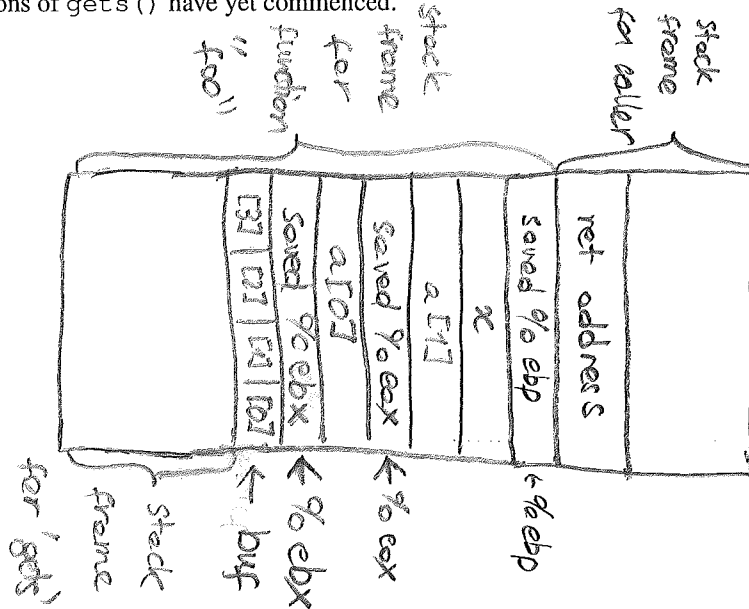 ons of gets() have yet commenced.
Stack
frame
for caller
stack
frame
for
function
"foo"
ret address
saved %ebp
x
a[1]
Saved %eax
a[0]
Saved %ebx
[3] [2] [1] [0]
← %ebp
← %eax
← %ebx
← buf
stack
frame
for "gets"